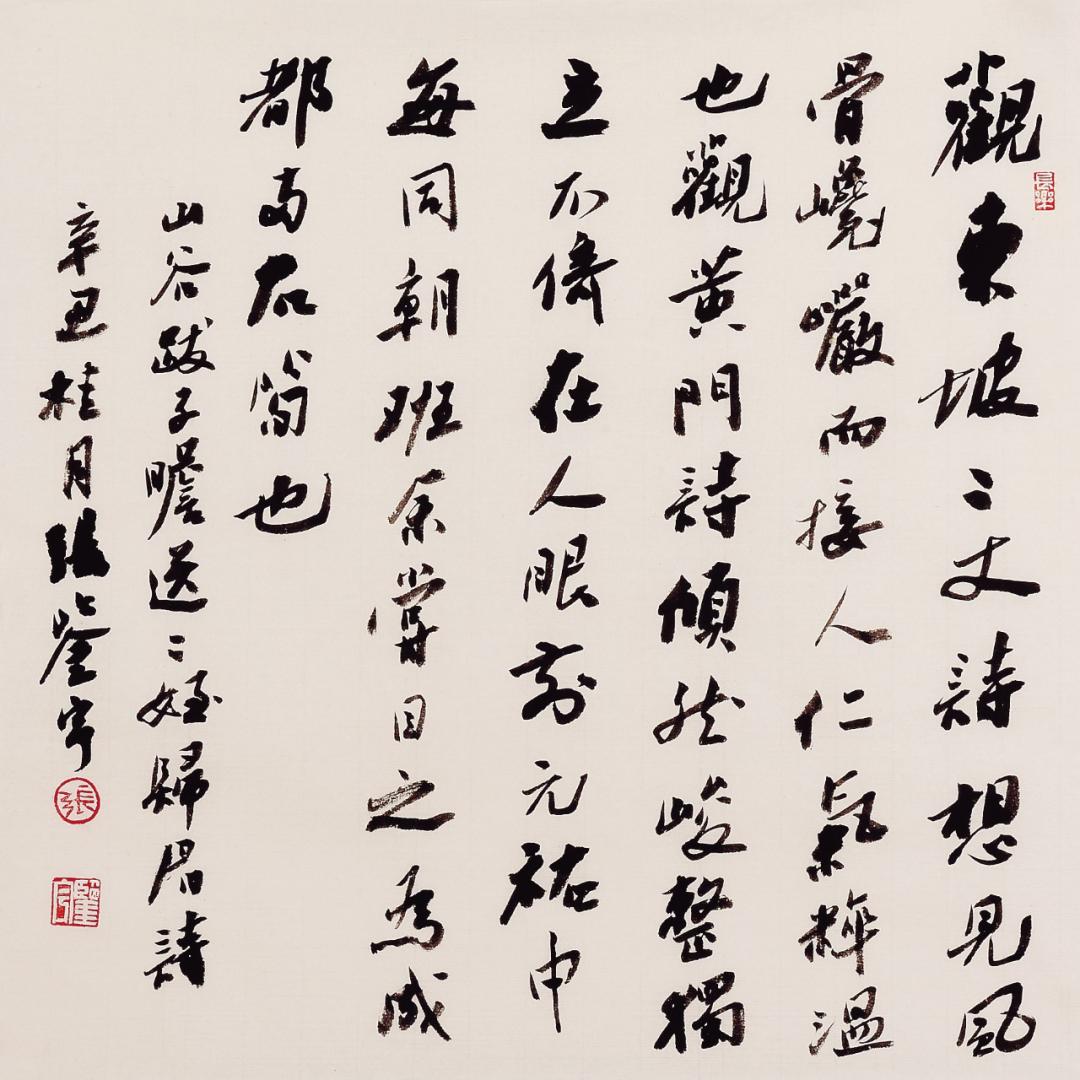 觀東坡二丈詩想見風
骨巉巖而接人仁氣粹溫
也觀黃門詩頎然峻整獨
立不倚在人眼前元祐中
每同朝班余嘗目之為成
都兩石筍也
山谷跋子瞻送二姪歸眉詩
辛丑桂月張鑒宇
長樂
張